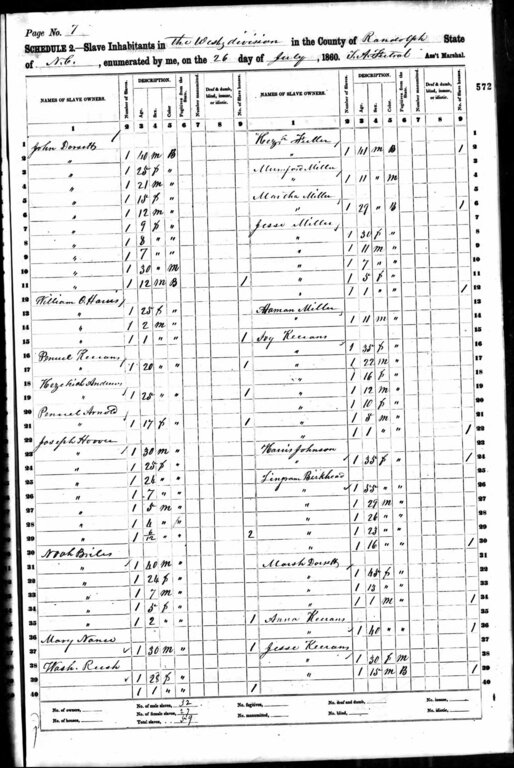 Page No. 7
SCHEDULE 2.—Slave Inhabitants in the West division in the County of Randolph State
of N.C., enumerated by me, on the 26 day of July, 1860. Ass't Marshal.
572
NAMES OF SLAVE OWNERS. Number of Slaves. DESCRIPTION. Age. Sex. Color. Fugitives from the State. Number manumitted. Deaf & dumb, blind, insane, or idiotic. No. of Slave houses.
NAMES OF SLAVE OWNERS. Number of Slaves. DESCRIPTION. Age. Sex. Color. Fugitives from the State. Number manumitted. Deaf & dumb, blind, insane, or idiotic. No. of Slave houses.
1 2 3 4 5 6 7 8 9 1 2 3 4 5 6 7 8 9
1 John Dorsett
2 " 1 40 m B
3 " 1 25 f "
4 " 1 21 m "
5 " 1 18 f "
6 " 1 12 m "
7 " 1 9 f "
8 " 1 8 " "
9 " 1 7 " "
10 " 1 30 " m
11 " 1 12 m B 1
12 William C Harris
13 " 1 25 f "
14 " 1 2 m "
15 " 1 1 " " 1
16 Penuel Kerrans
17 " 1 20 " " 1
18 Hezekiah Andrews
19 " 1 25 " " 1
20 Penuel Arnold
21 " 1 17 f " 1
22 Joseph Hoover
23 " 1 30 m "
24 " 1 25 f "
25 " 1 26 " "
26 " 1 7 " "
27 " 1 5 m "
28 " 1 4 " "
29 " 1 " " 2
30 Noah Briles
31 " 1 40 m "
32 " 1 24 f "
33 " 1 7 m "
34 " 1 5 f "
35 " 1 2 " " 1
36 Mary Nance
37 " 1 30 m " 1
38 Wash. Rush
39 " 1 23 f "
40 1 1 " " 1
1 Fuller
2 " 1 41 m B 1
3 Miller
4 " 1 11 " m
5 Martha Miller
6 " 1 29 " B 1
7 Jesse Miller
8 " 1 30 f "
9 " 1 11 m "
10 " 1 7 " "
11 " 1 5 f "
12 " 1 1 " " 1
13 Miller
14 " 1 11 m "
15 Ivy Kerrans
16 " 1 35 f "
17 " 1 22 m "
18 " 1 16 f "
19 " 1 12 m "
20 " 1 10 f "
21 " 1 8 m "
22 " 1 1 " " 1
23 Harris Johnson
24 " 1 35 f " 1
25 Birkhead
26 " 1 55 " "
27 " 1 29 m "
28 " 1 26 " "
29 " 1 23 " "
30 " 1 16 " " 1
31 Marsh Dorsett
32 " 1 45 f "
33 " 1 13 " "
34 " 1 1 m " 1
35 Anna Kerrans
36 " 1 40 " " 1
37 Jesse Kerrans
38 " 1 30 f m
39 " 1 15 m B 1
40
No. of owners, No. of male slaves, 32 No. fugitives, No. deaf and dumb, No. insane,
No. of houses, No. of female slaves, 27 No. manumitted, No. blind, No. idiotic,
Total slaves, 59